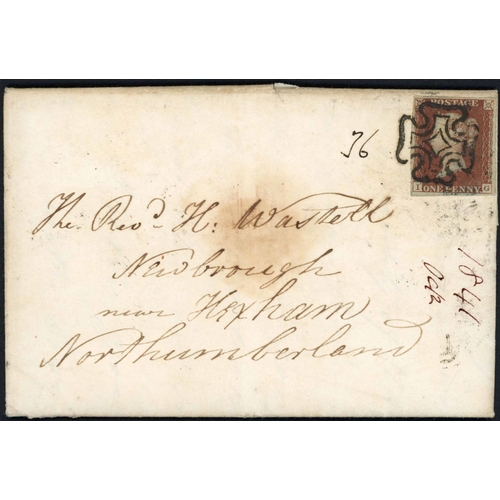 POSTAGE
36
I ONE PENNY G
The Revd. H: Wastell
Newbrough
near Hexham
Northumberland
1841
Oct